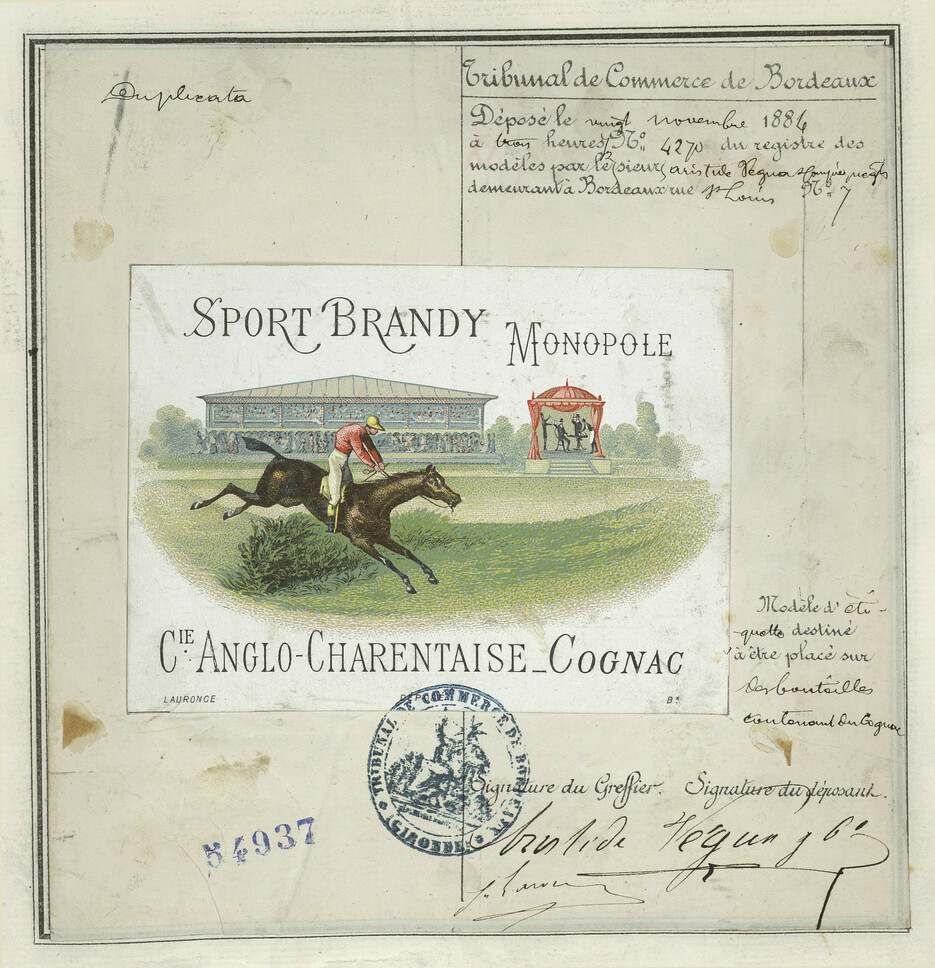 Duplicata
Tribunal de Commerce de Bordeaux
Déposé le vingt novembre 1884
à trois heures N° 4270 du registre des
modèles par le sieur aristide Végua & Compie négts
demeurant à Bordeaux rue St Louis N° 7
SPORT BRANDY MONOPOLE
CIE ANGLO-CHARENTAISE_COGNAC
LAURONCE DÉPOSÉ Bx
Modèle d'éti-
quette destiné
à être placé sur
des bouteilles
contenant du Cognac
TRIBUNAL DE COMMERCE DE BORDEAUX
(GIRONDE)
Signature du Greffier. Signature du déposant.
Aristide Végua
54937